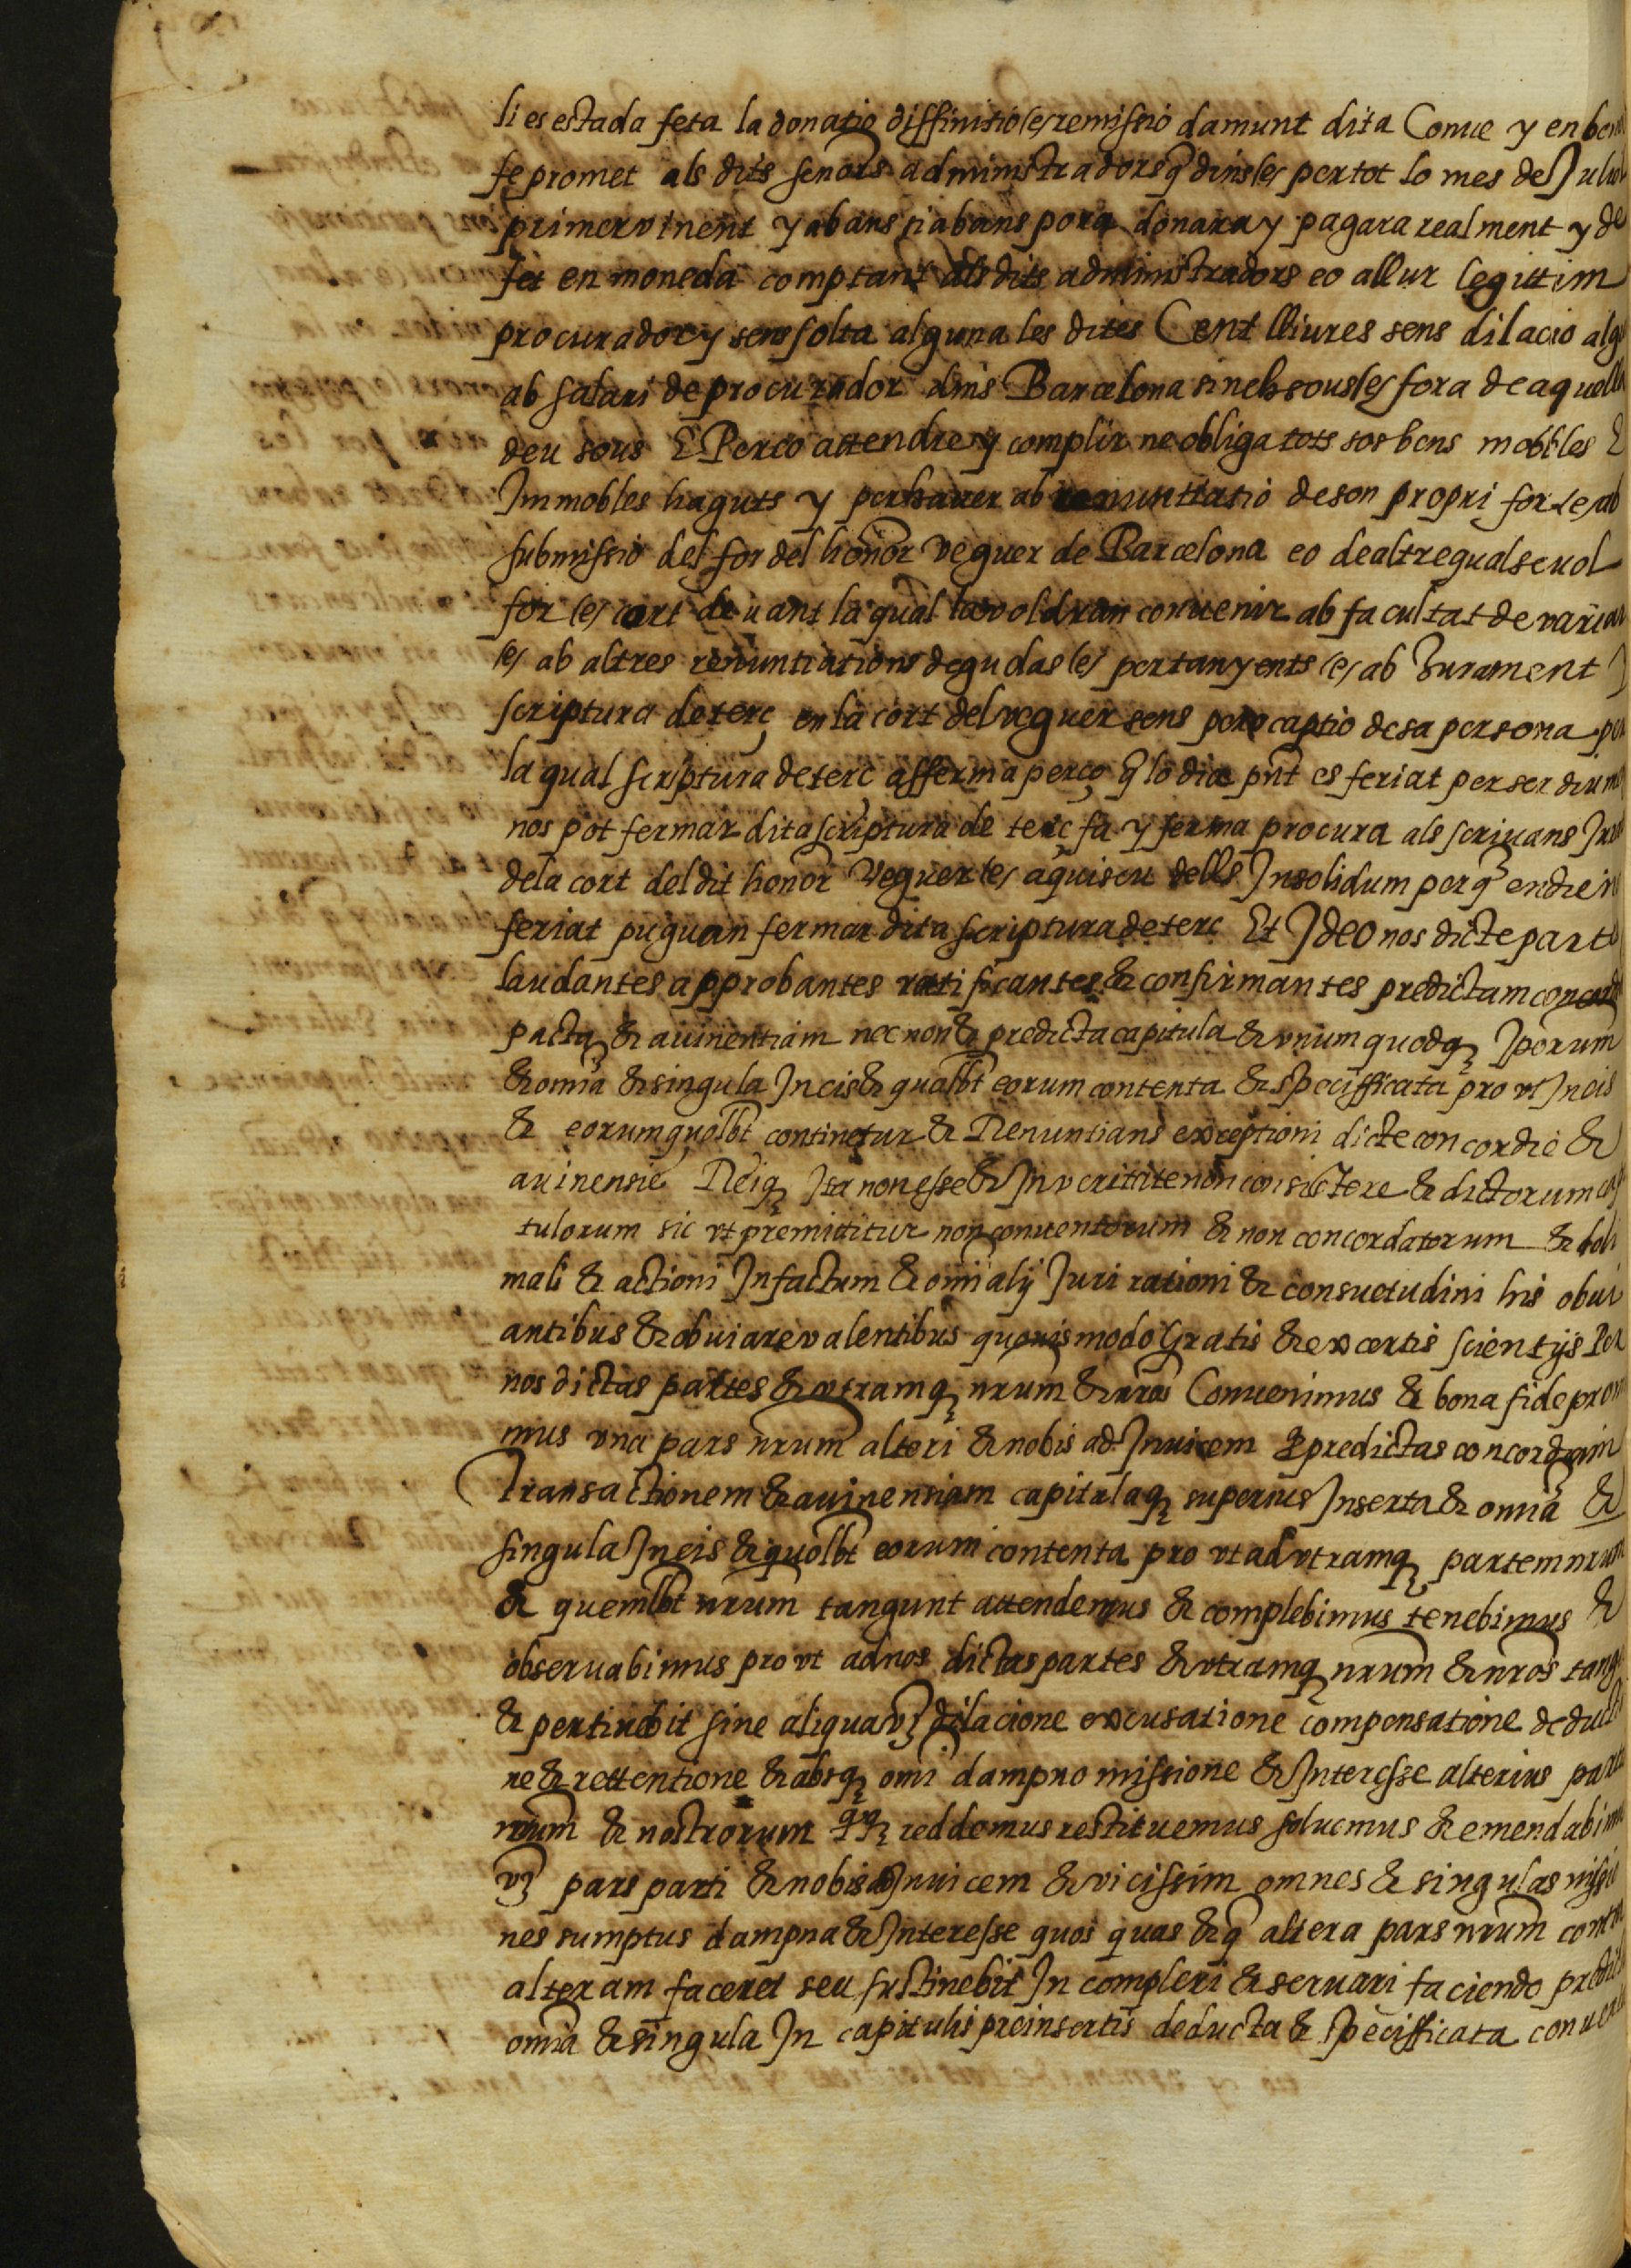 li es estada feta la donatio diffinitio (e) remissio damunt dita Conue y en bona
fe promet als dits senors administradors q̃ dins (e) per tot lo mes de Juliol
primer vinent y abans si abans pora donara y pagara realment y de
fet en moneda comptant als dits administradors eo allur legittim
procurador y sens solta alguna les dites Cent lliures sens dilacio alg
ab salari de procurador dins Barcelona sinch sous (e) fora de aquella
deu sous E Perço attendre y complir ne obliga tots sos bens mobbles E
Immobles haguts y per hauer ab renuntiatio de son propri for (e) ab
submissio del for del honor veguer de Barcelona eo de altre qualseuol
for (e) cort deuant la qual lo voldran conuenir ab facultat de variar
(e) ab altres renuntiations degudas (e) pertanyents (e) ab Jurament J
scriptura de terç en la cort del veguer sens pero captio de sa persona per
la qual scriptura de terç afferma perço q̃ lo dia pñt es feriat per ser diume
nos pot fermar dita scriptura de terç fa y ferma procura als scriuans Jur
de la cort del dit honor Veguer (e) a quiscu dells Insolidum perq̃ en die in
feriat puguan fermar dita scriptura de terç Et Ideo nos dicte parte
laudantes approbantes ratificantes & confirmantes predictam concord
pacta & auinentiam nec non & predicta capitula & vnumquodq; Iporum
& omia & singula In eis & quolbt eorum contenta & specifficata pro vt In eis
& eorum quolbt continetur & Renuntians exceptioni dicte concordie &
auinensie Reiq; Ita non esse & In veritate non consistere & dictorum cap
tulorum sic vt premittitur non conuentorum & non concordatorum & doli
mali & actioni In factum & omi alij Juri rationi & consuetudini his obui
antibus & obuiare valentibus quouismodo Gratis & ex certis scientijs Per
nos dictas partes & vtramq; nrum & nros Conuenimus & bona fide prom
mus vna pars nrum alteri & nobis ad Inuicem & predictas concordiam
Transactionem & auinensiam capitulaq; superius Inserta & omia &
singula In eis & quolbt eorum contenta pro vt ad vtramq; partem nrum
& quemlbt nrum tangunt attendemus & complebimus tenebimus &
obseruabimus pro vt ad nos dictas partes & vtramq; nrum & nros tang
& pertinebit sine aliqua vz dilacione excusatione compensatione deducti
ne & rettentione & absq; omi dampno missione & Interesse alterius parti
nrum & nostrorum reddemus restituemus soluemus & emendabimu
vz pars parti & nobis ad Inuicem & vicissim omnes & singulas missio
nes sumptus dampna & Interesse quos quas & q̃ altera pars nrum contra
alteram faceret seu sustinebit In compleri & seruari faciendo predict
omia & singula In capitulis preinsertis deducta & speciffiicata conuen